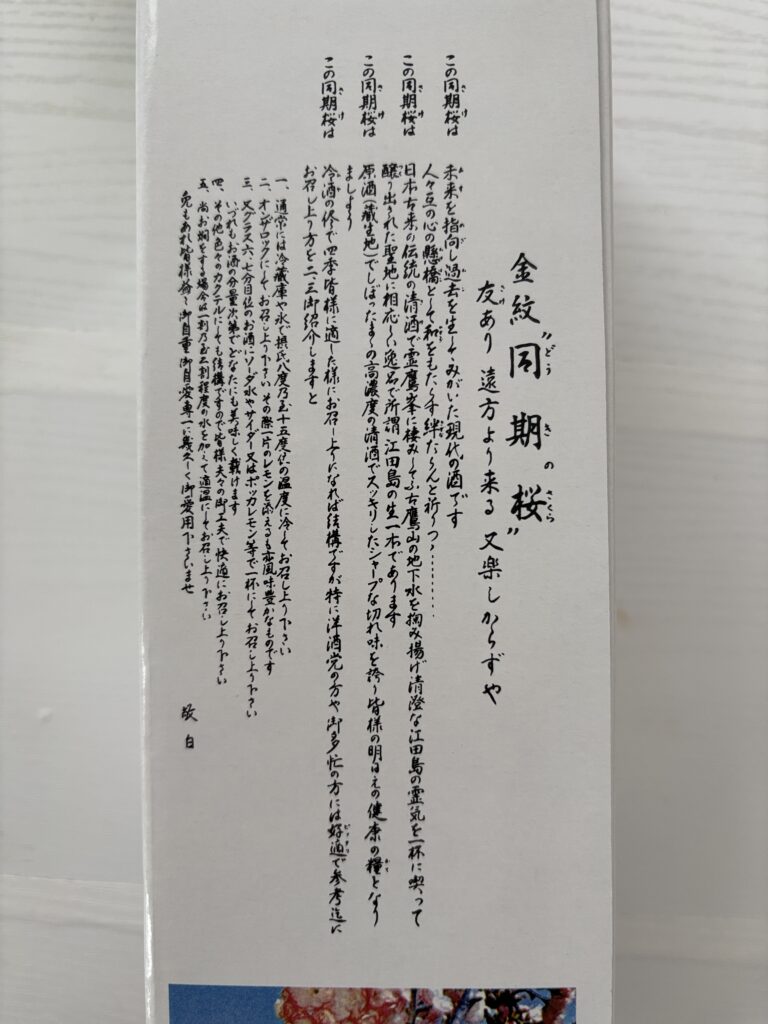 金紋〝同期の桜〟
友あり 遠方より来る 又楽しからずや
この同期桜は 未来を指向し過去を生してみがいた現代の酒です
人々互の心の懸橋として和をもたらす絆たらんと祈りつゝ………
この同期桜は 日本古来の伝統の清酒で霊鷹峯に棲みしてふ古鷹山の地下水を掬み揚げ清澄な江田島の霊気を一杯に喫って
醸り出された聖地に相応しい逸品で所謂江田島の生一本であります
この同期桜は 原酒(蔵生地)でしぼったまゝの高濃度の清酒でスッキリしたシャープな切れ味を誇り皆様の明日えの健康の糧となり
ましょう
この同期桜は 冷酒の侭で四季皆様に適した様にお召し上りになれば結構ですが特に洋酒党の方や御多忙の方には好適で参考迄に
お召し上り方を二、三御紹介しますと
一、通常には冷蔵庫や氷で摂氏八度乃至十五度位の温度に冷してお召し上り下さい
二、オンザロックにしてお召し上り下さい その際一片のレモンを添えるも亦風味豊かなものです
三、又グラス六、七分目位のお酒にソーダ水やサイダー又はポッカレモン等で一杯にしてお召し上り下さい
いづれもお酒の分量次第でどなたにも美味しく戴けます
四、その他色々のカクテルにしても結構ですので皆様夫々の御工夫で快適にお召し上り下さい
五、尚お燗をする場合は一割乃至二割程度の水を加えて適温にしてお召し上り下さい
兎もあれ皆様餘々御自重御自愛専一に幾久しく御愛用下さいませ
敬白